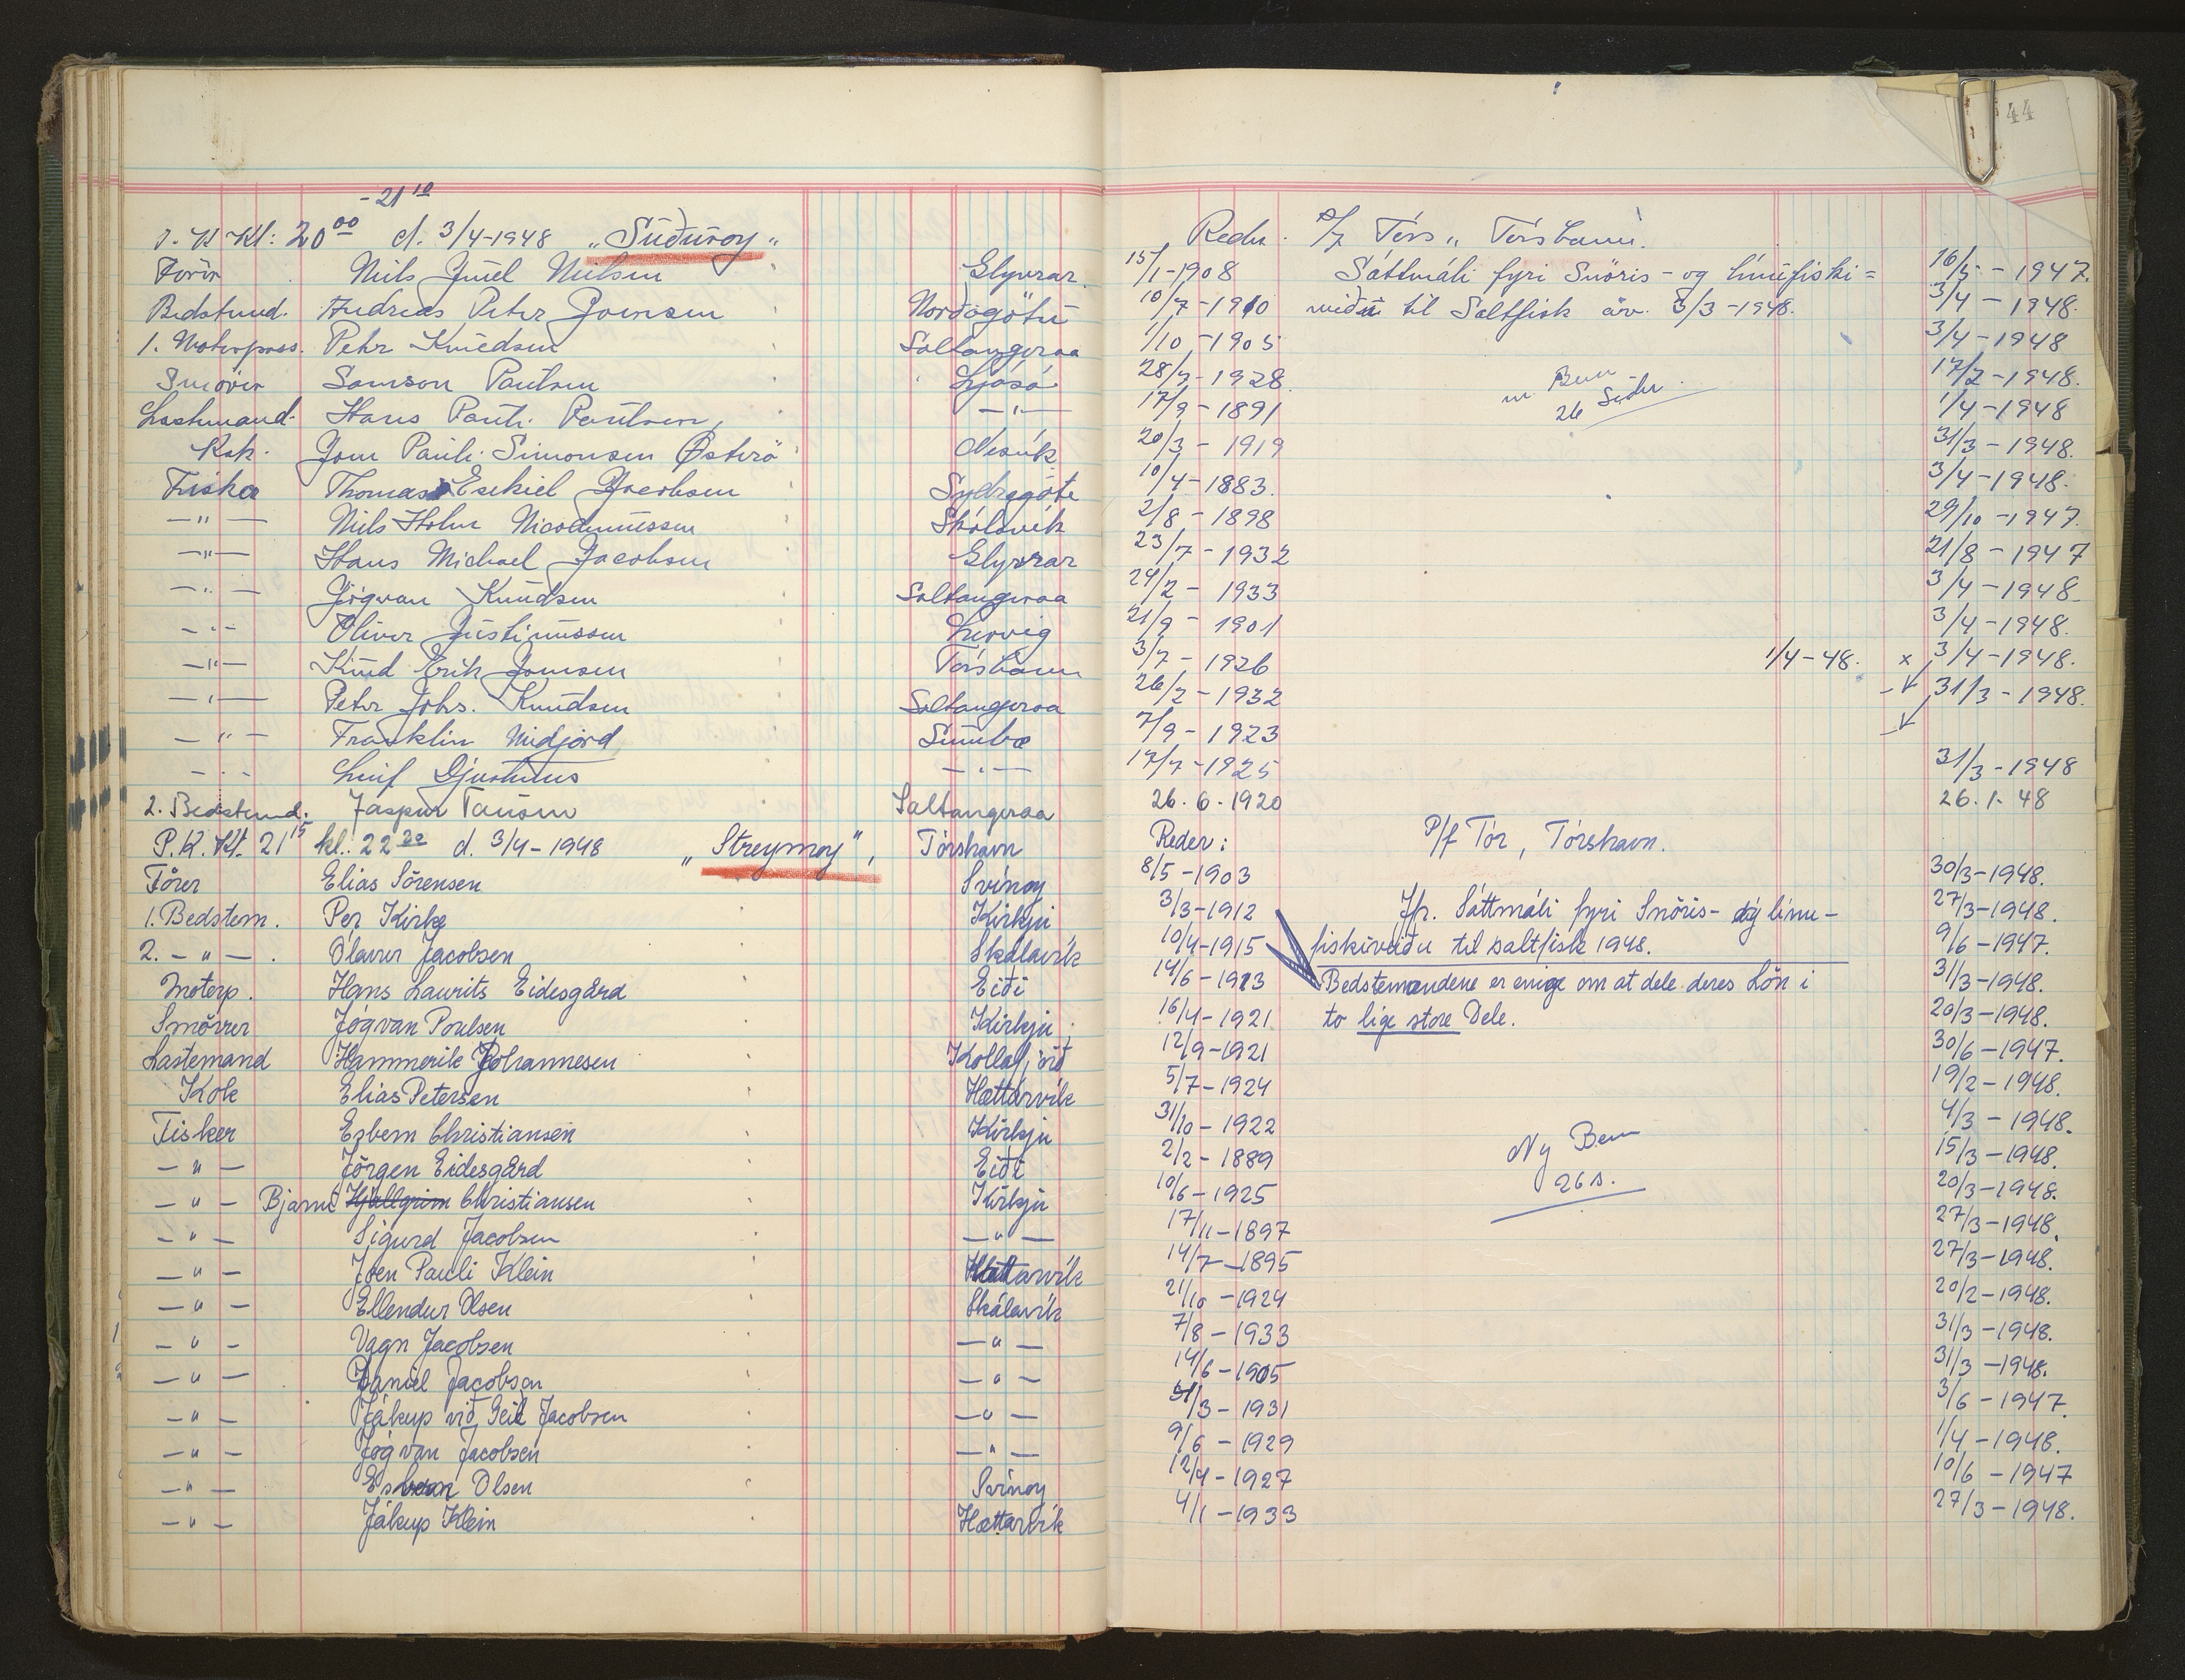 44
- 21 10
P. K. Kl: 20 00 d. 3/4-1948 „Suðuroy“ Reder. P/f Tórs „ Tórshavn.
Förer Niels Juel Nielsen Glyvrar. 15/1-1908 Sáttmáli fyri Snöris- og línufiski= 16/5-1947.
Bedstemd. Andreas Peter Joensen Norðagötu 10/7-1910 veiðu til Saltfisk árv. 3/3-1948. 3/4-1948.
1. Motorpass. Peter Knudsen Saltangeraa 1/10-1905 3/4-1948
Smörer Samson Paulsen Ljósá 28/7-1928. 17/2-1948.
Lastmand. Hans Pauli Poulsen, -"- 17/9-1891 26 Sider 1/4-1948
Kok. Joen Pauli Simonsen Österö Nesvík 20/3-1919 31/3-1948.
Fisker Thomas Esekiel Jacobsen Sydregöte 10/4-1883. 3/4-1948.
-"- Niels Holm Nicodemussen Skálavík 2/8-1898 29/10-1947.
-"- Hans Michael Jacobsen Glyvrar 23/7-1932 21/8-1947
-"- Jógvan Knudsen Saltangeraa 24/2-1933 3/4-1948.
-"- Oliver Justinussen Lervig 21/9-1901 3/4-1948.
-"- Knud Erik Joensen Tórshavn 3/7-1926 1/4-48. x 3/4-1948.
-"- Peter Johs. Knudsen Saltangeraa 26/2-1932 31/3-1948.
-"- Franklin Midjord Sumbø 7/9-1923
-"- Leif Djurhuus -"- 17/7-1925 31/3-1948
2. Bedstemd. Jaspur Tausen Saltangeraa 26.6.1920 26.1.48
P.K. Kl. 21 15 kl. 22 30 d. 3/4-1948 „Streymoy“, Tórshavn Reder: P/f Tór, Tórshavn.
Förer Elias Sörensen Svínoy 8/5-1903 30/3-1948.
1. Bedstem. Per Kirke Kirkju 3/3-1912 Jfr. Sáttmáli fyri Snöris- og línu- 27/3-1948.
2. -"-. Ólavur Jacobsen Skálavík 10/4-1915 fiskiveiðu til saltfisk 1948. 9/6-1947.
Motorp. Hans Laurits Eidesgård Eiði 14/6-1913 Bedstemændene er enige om at dele deres Lön i 31/3-1948.
Smörrer Jógvan Poulsen Kirkju 16/4-1921 to lige store Dele. 20/3-1948.
Lastemand Hammerik Johannesen Kollafjörð 12/9-1921 30/6-1947.
Kok Elias Petersen Hattarvík 5/7-1924 19/2-1948.
Fisker Esbern Christiansen Kirkju 31/10-1922 4/3-1948.
-"- Jörgen Eidesgård Eiði 2/2-1889 Ny Bem 15/3-1948.
-"- Bjarni Hjallgrim Christiansen Kirkju 10/6-1925 26 s. 20/3-1948.
-"- Sigurd Jacobsen -"- 17/11-1897 27/3-1948.
-"- Joen Pauli Klein Hattarvík 14/7-1895 27/3-1948.
-"- Ellendur Olsen Skálavík 21/10-1924 20/2-1948.
-"- Vagn Jacobsen -"- 7/8-1933 31/3-1948.
-"- Daniel Jacobsen -"- 14/6-1905 31/3-1948.
-"- Jákup við Geil Jacobsen -"- /3-1931 3/6-1947.
-"- Jógvan Jacobsen -"- 9/6-1929 1/4-1948.
-"- Esbern Olsen Svínoy 12/4-1927 10/6-1947
-"- Jákup Klein Hattarvík 4/1-1933 27/3-1948.